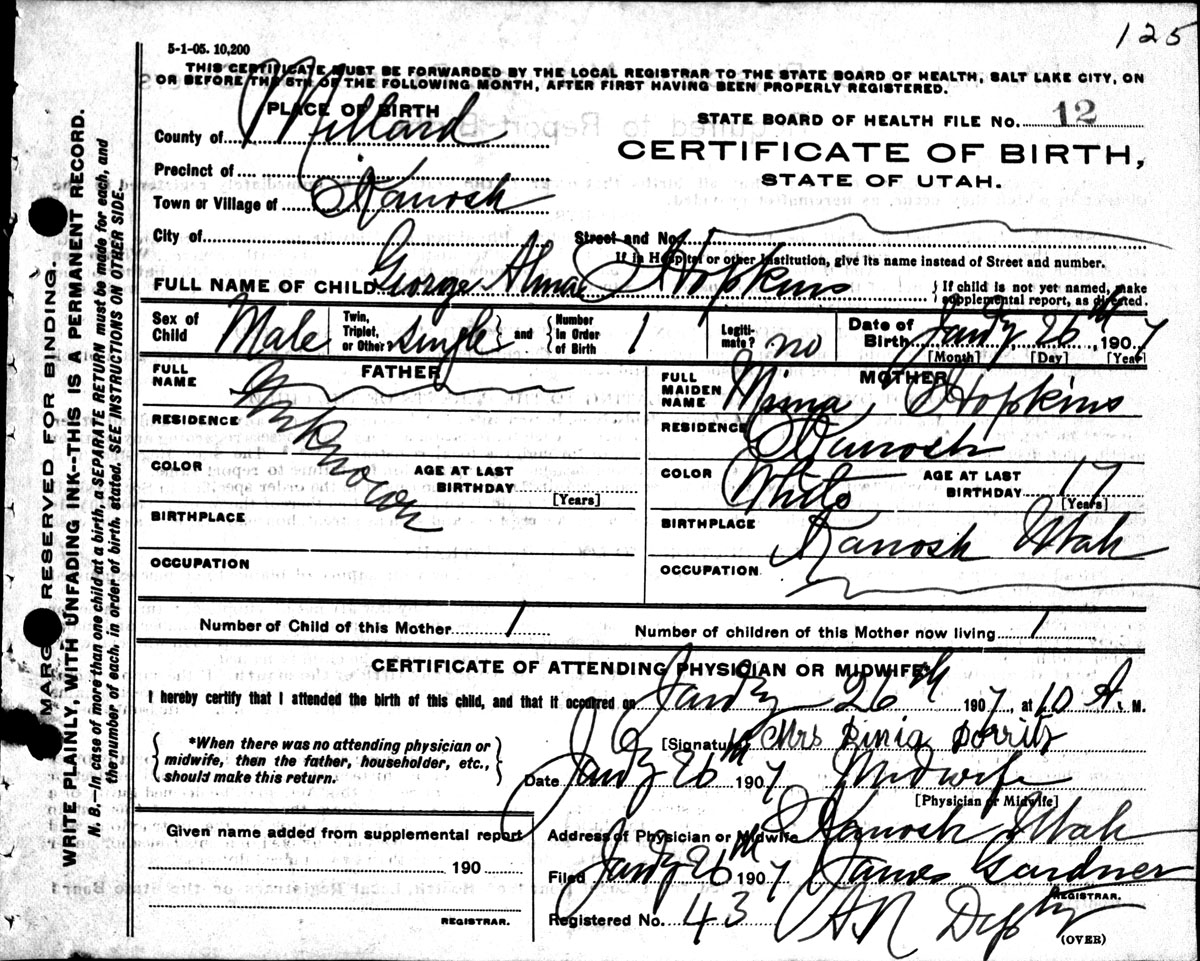 125
5-1-05. 10,200
THIS CERTIFICATE MUST BE FORWARDED BY THE LOCAL REGISTRAR TO THE STATE BOARD OF HEALTH, SALT LAKE CITY, ON
OR BEFORE THE 5TH OF THE FOLLOWING MONTH, AFTER FIRST HAVING BEEN PROPERLY REGISTERED.
PLACE OF BIRTH
STATE BOARD OF HEALTH FILE NO. 12
County of Millard
CERTIFICATE OF BIRTH,
STATE OF UTAH.
Precinct of
Town or Village of Kanosh
City of
Street and No.
If in Hospital or other Institution, give its name instead of Street and number.
FULL NAME OF CHILD George Alma Hopkins { If child is not yet named, make supplemental report, as directed.
Sex of Child Male Twin, Triplet, or Other? single and Number in Order of Birth 1 Legitimate? no Date of Birth Jandy 26th, 1907
[Month] [Day] [Year]
FATHER
FULL NAME Unknown
RESIDENCE
COLOR AGE AT LAST BIRTHDAY [Years]
BIRTHPLACE
OCCUPATION
MOTHER
FULL MAIDEN NAME Mima Hopkins
RESIDENCE Kanosh
COLOR White AGE AT LAST BIRTHDAY 17 [Years]
BIRTHPLACE Kanosh Utah
OCCUPATION
Number of Child of this Mother 1 Number of children of this Mother now living 1
CERTIFICATE OF ATTENDING PHYSICIAN OR MIDWIFE*
I hereby certify that I attended the birth of this child, and that it occurred on Jandy 26th 1907, at 10 A. M.
{ *When there was no attending physician or midwife, then the father, householder, etc., should make this return. }
[Signature] Mrs
Date Jandy 26th 1907 Midwife
[Physician or Midwife]
Given name added from supplemental report
190
REGISTRAR.
Address of Physician or Midwife Kanosh Utah
Filed Jandy 26th 1907 James Gardner
REGISTRAR.
Registered No. 43
(OVER)
MARGIN RESERVED FOR BINDING.
WRITE PLAINLY, WITH UNFADING INK--THIS IS A PERMANENT RECORD.
N. B.—In case of more than one child at a birth, a SEPARATE RETURN must be made for each, and
the number of each, in order of birth, stated. SEE INSTRUCTIONS ON OTHER SIDE.